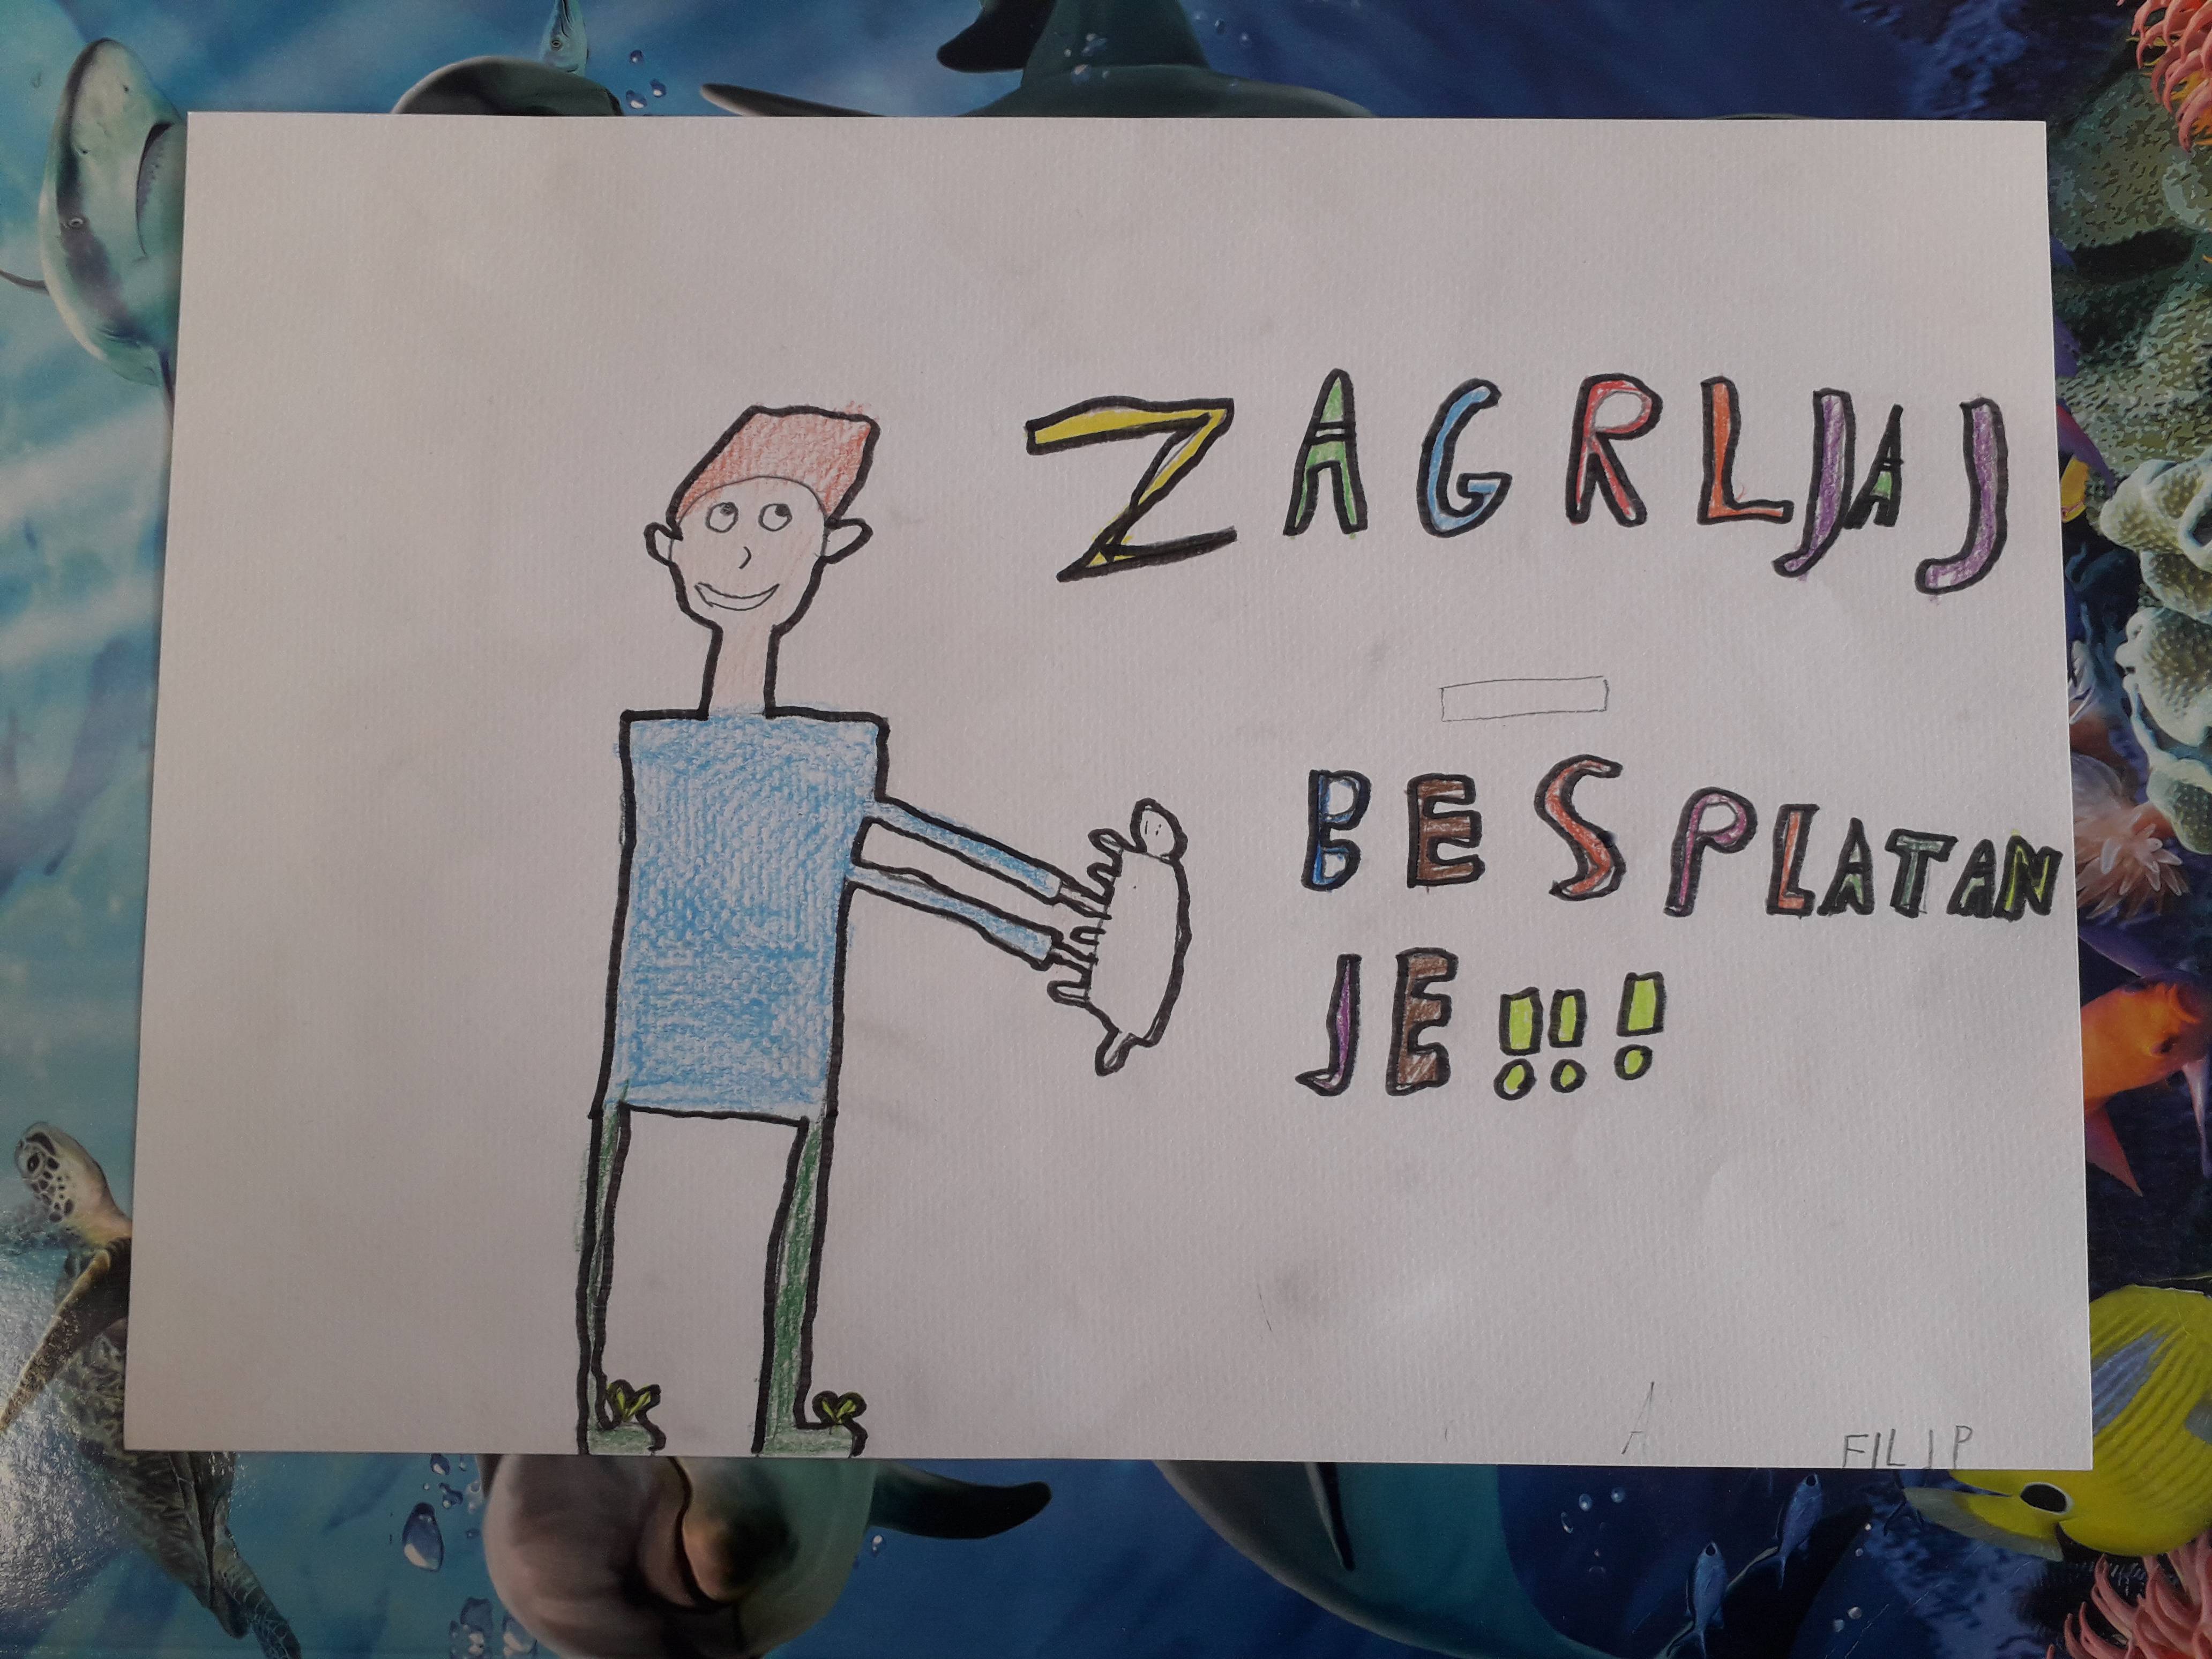 ZAGRLJAJ
BESPLATAN
JE!!!
A
FILIP